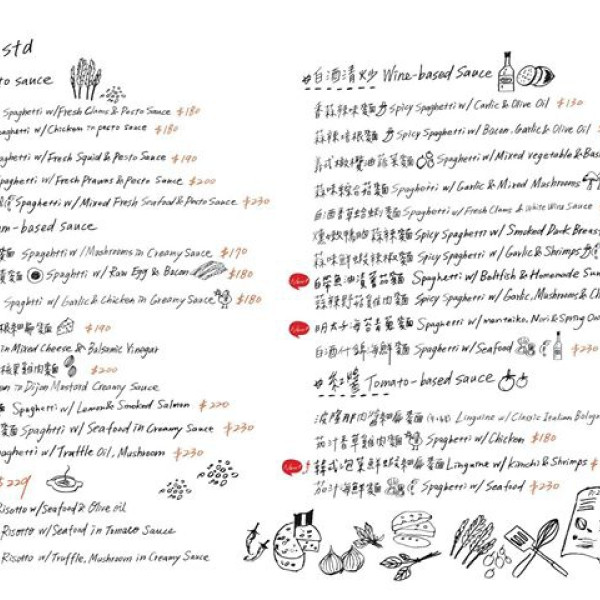 std
to sauce
Spaghetti w/Fresh Clams & Pesto Sauce $180
Spaghetti w/Chicken in pesto sauce $180
Spaghetti w/Fresh Squid & Pesto Sauce $190
Spaghetti w/Fresh Prawns & Pesto Sauce $200
Spaghetti w/Mixed Fresh Seafood & Pesto Sauce $230
m-based sauce
麵 Spaghetti w/Mushrooms in Creamy Sauce $170
麵 Spaghetti w/ Raw Egg & Bacon $180
Spaghetti w/ Garlic & Chicken in Creamy Sauce $180
麵 $190
in Mixed Cheese & Balsamic Vinegar
雞肉麵 $200
in Dijon Mustard Creamy Sauce
Spaghetti w/ Lemon & Smoked Salmon $220
麵 Spaghetti w/ Seafood in Creamy Sauce $230
Spaghetti w/ Truffle Oil, Mushroom $230
$229
Risotto w/Seafood & Olive oil
Risotto w/Seafood in Tomato Sauce
Risotto w/Truffle, Mushroom in Creamy Sauce
#白酒清炒 Wine-based Sauce
香蒜辣味麵 Spicy Spaghetti w/ Garlic & Olive Oil $130
蒜辣培根麵 Spicy Spaghetti w/ Bacon, Garlic & Olive Oil
橄欖油蔬菜麵 Spaghetti w/Mixed vegetable & Bas
蒜味綜合菇麵 Spaghetti w/ Garlic & Mixed Mushrooms
白酒香草蛤蜊麵 Spaghetti w/ Fresh Clams & White Wine Sauce
煙燻鴨胸蒜辣麵 Spicy Spaghetti w/ Smoked Duck Breast
蒜味鮮蝦辣椒麵 Spicy Spaghetti w/ Garlic & Shrimps
New! 油漬蕃茄麵 Spaghetti w/ Beltfish & Homemade Sun
蒜辣野菇雞肉麵 Spicy Spaghetti w/ Garlic, Mushrooms & Ch
New! 明太子海苔青蔥麵 Spaghetti w/ mentaiko, Nori & Spring On
白酒什錦海鮮麵 Spaghetti w/Seafood $230
#紅醬 Tomato-based sauce
波隆那肉醬細扁麵 Linguine w/ Classic Italian Bologn
茄汁香草雞肉麵 Spaghetti w/ Chicken $180
New! 韓式泡菜鮮蝦細扁麵 Linguine w/ Kimchi & Shrimps $
茄汁海鮮麵 Spaghetti w/ Seafood $230